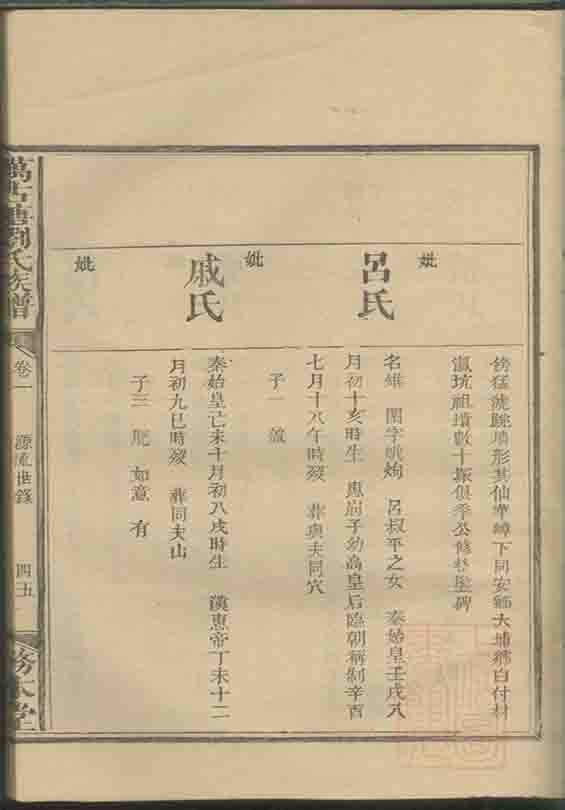 傍猛虎跳墻形其仙華嶂下同安鄉大埔鄉白付村
瀛坑祖墳數十塚俱季公修整豎碑
妣
呂氏
名雉 閨字娥姁 呂叔平之女 秦始皇壬戌八
月初十亥時生 惠崩子幼高皇后臨朝稱制辛酉
七月十八午時歿 葬與夫同穴
子一 盈
妣
戚氏
秦始皇己未十月初八戌時生 漢惠帝丁未十二
月初九巳時歿 葬同夫山
子三 肥 如意 有
妣
萬古塘劉氏族譜
卷一 源流世錄 四五
務本堂